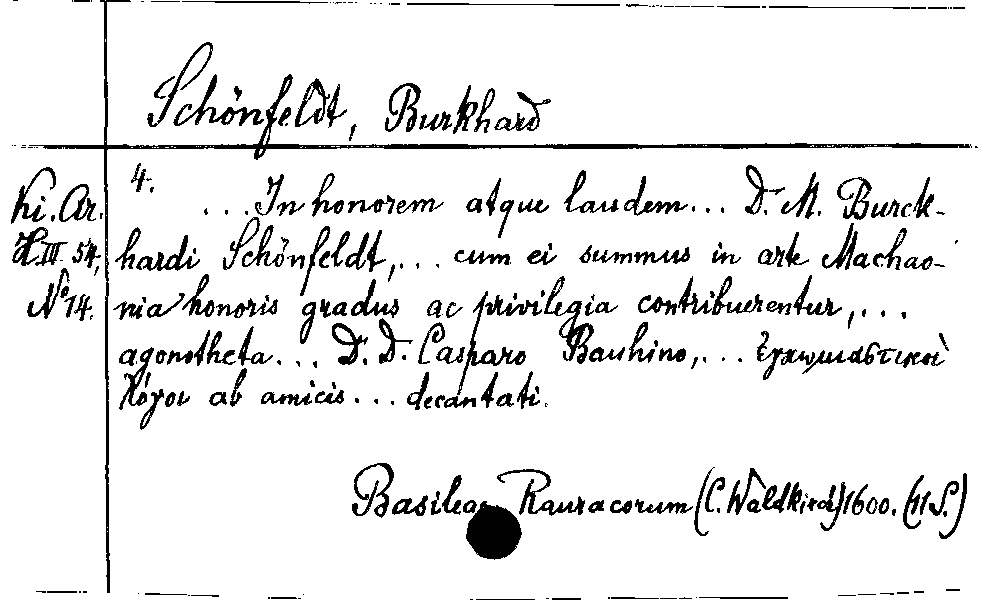 Schönfeldt, Burkhard
Ki. Ar.
H III 54,
No 14.
4.
...In honorem atque laudem... D. M. Burck-
hardi Schönfeldt,... cum ei summus in arte Machao-
nia honoris gradus ac privilegia contribuerentur,...
agonotheta... D. D. Casparo Bauhino,... ἐγκωμιαστικοὶ
λόγοι ab amicis... decantati.
Basileae Rauracorum (C. Waldkirch) 1600. (11 S.)